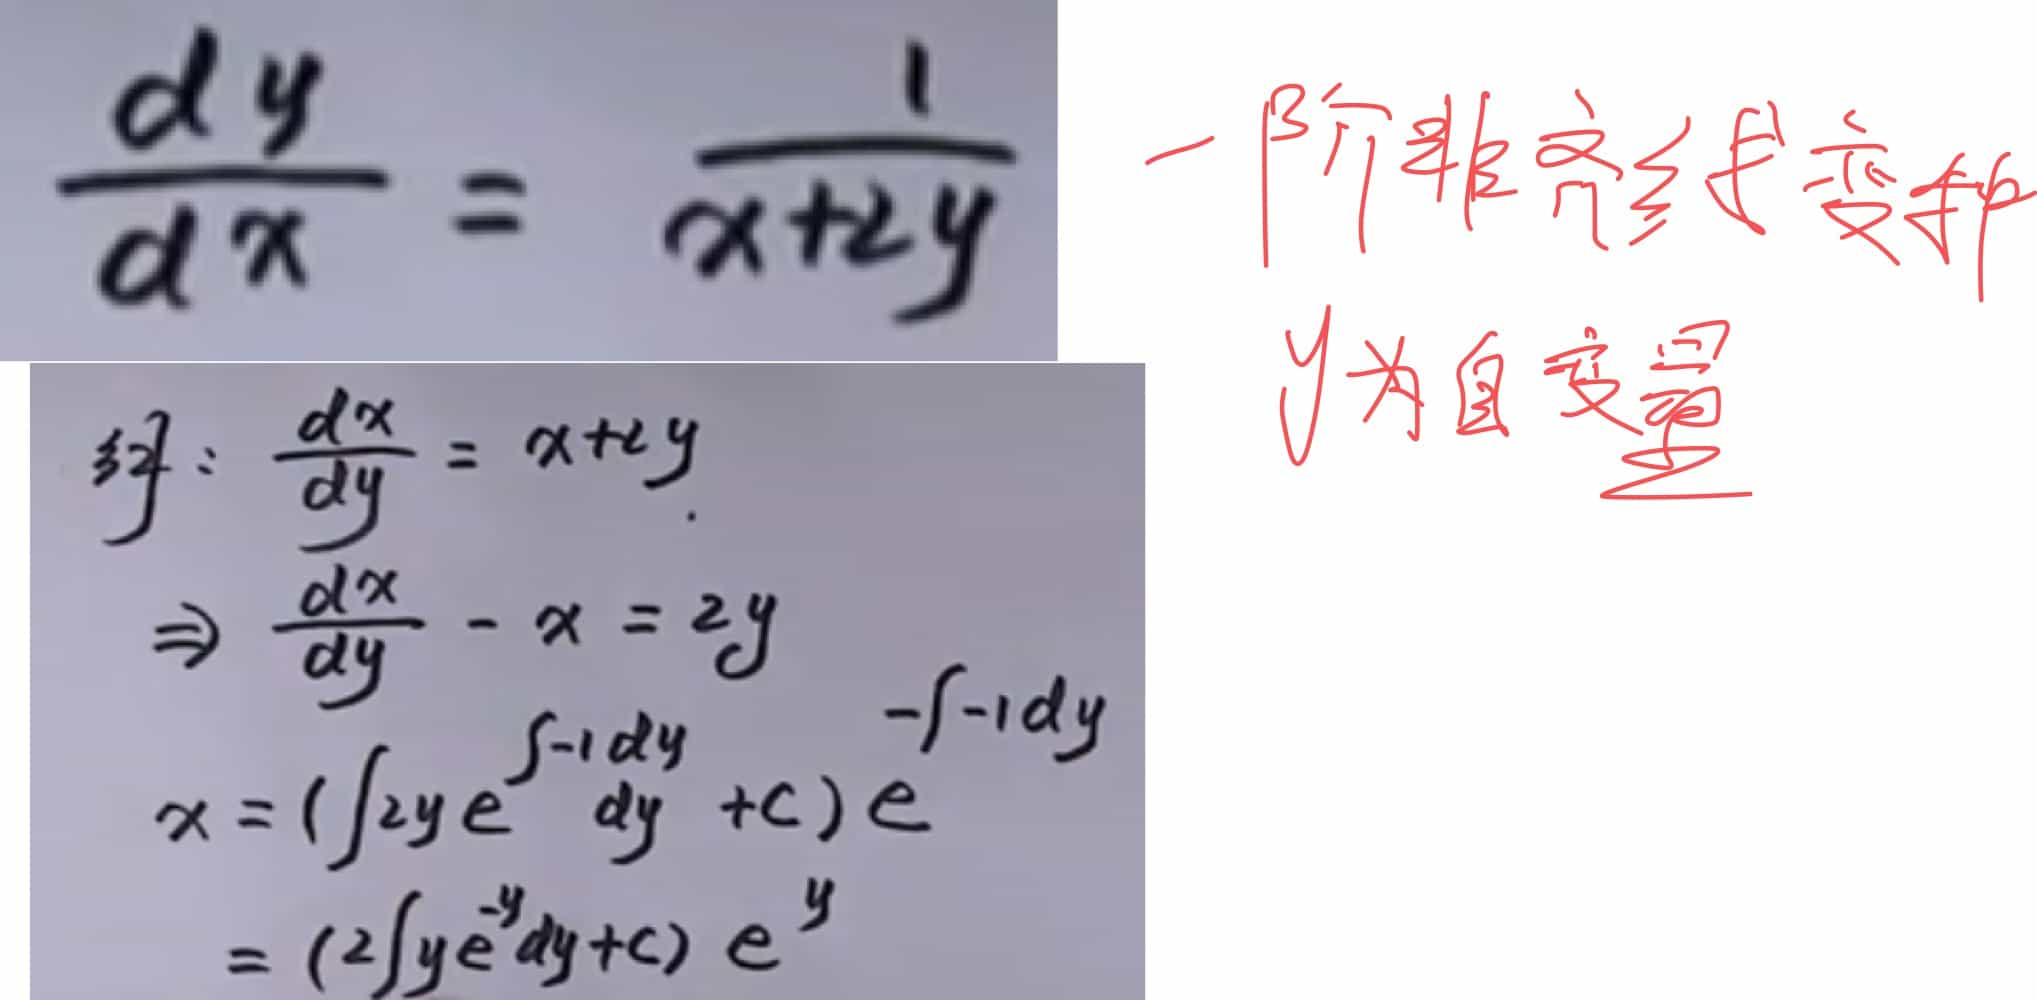 dy/dx = 1/(x+2y)
一阶非齐线性变种
y为自变量
解: dx/dy = x+2y.
⇒ dx/dy - x = 2y
x = (∫2ye^{∫-1dy} dy +C) e^{-∫-1dy}
= (2∫ye^{-y}dy+C) e^y